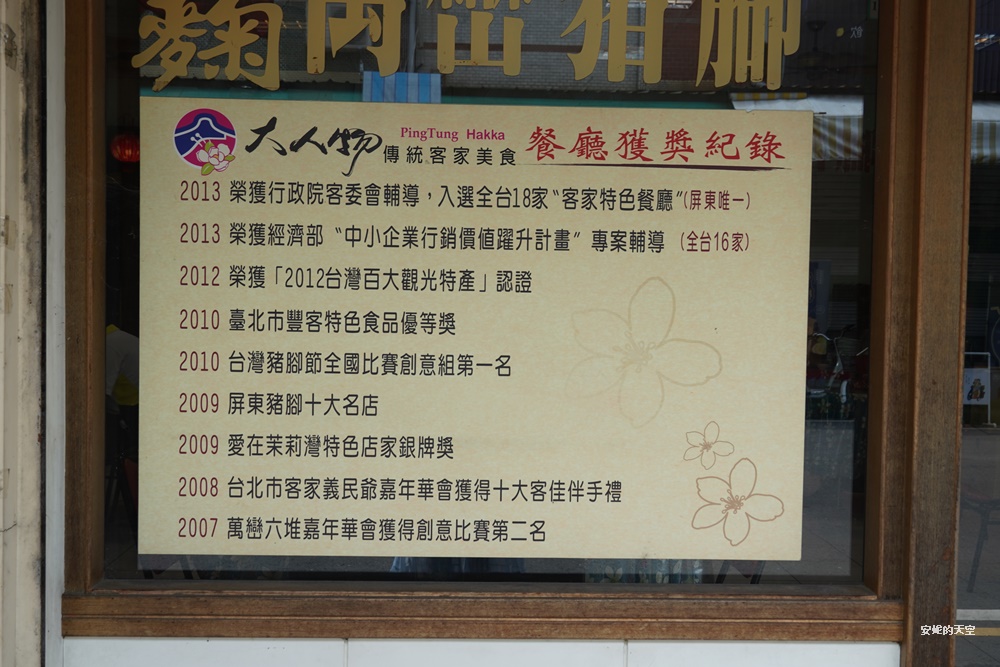 麴肉巒豬腳
大人物 PingTung Hakka 傳統客家美食 餐廳獲獎紀錄
2013 榮獲行政院客委會輔導，入選全台18家“客家特色餐廳”(屏東唯一)
2013 榮獲經濟部“中小企業行銷價值躍升計畫”專案輔導 (全台16家)
2012 榮獲「2012台灣百大觀光特產」認證
2010 臺北市豐客特色食品優等獎
2010 台灣豬腳節全國比賽創意組第一名
2009 屏東豬腳十大名店
2009 愛在茉莉灣特色店家銀牌獎
2008 台北市客家義民爺嘉年華會獲得十大客佳伴手禮
2007 萬巒六堆嘉年華會獲得創意比賽第二名
安妮的天空